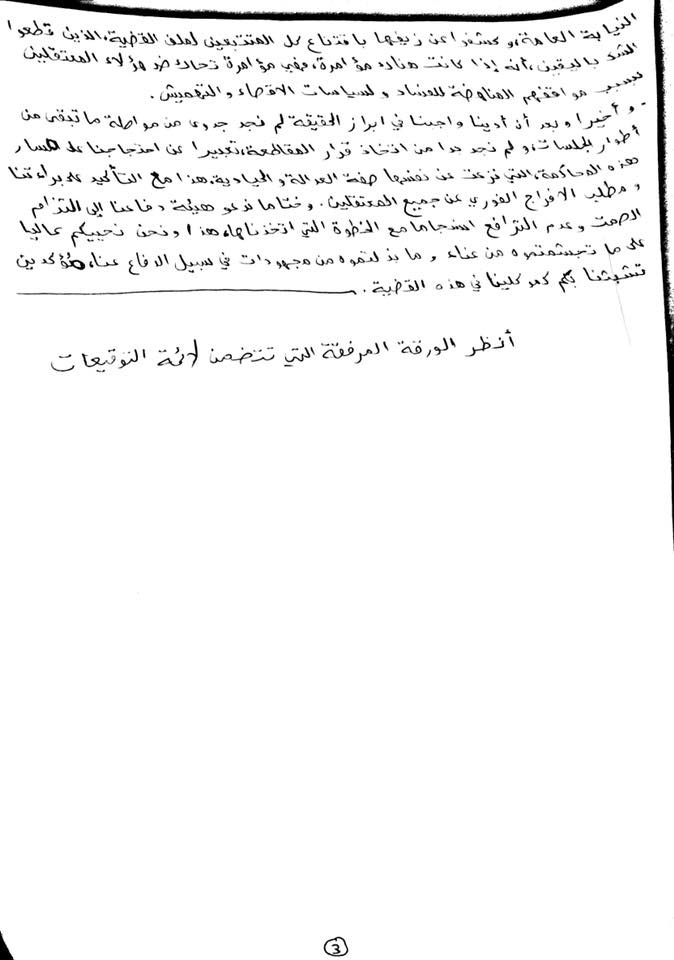 النيابة العامة، و كشفوا عن زيفها باقتناع كل المتتبعين لملف القضية، الذين قطعوا
الشك باليقين، أنه إذا كانت هناك مؤامرة، فهي مؤامرة تحاك ضد هؤلاء المعتقلين
بسبب مواقفهم المناهضة للفساد و لسياسات الاقصاء و التهميش.
- و أخيرا و بعد أن أدينا واجبنا في ابراز الحقيقة لم نجد جدوى من مواصلة ما تبقى من
أطوار الجلسات، و لم نجد بدا من اتخاذ قرار المقاطعة، تعبيرا عن احتجاجنا على مسار
هذه المحاكمة، التي نزعت عن نفسها صفة العدالة و الحيادية. هذا مع التأكيد على براءتنا
و مطلب الافراج الفوري عن جميع المعتقلين. و ختاما ندعو هيئة دفاعنا إلى التزام
الصمت و عدم الترافع انسجاما مع الخطوة التي اتخذناها، هذا و نحن نحييكم عاليا
على ما تجشمتموه من عناء و ما بذلتموه من مجهودات في سبيل الدفاع عنا، مؤكدين
تشبثنا بكم كموكلينا في هذه القضية.
أنظر الورقة المرفقة التي تتضمن لائحة التوقيعات
3